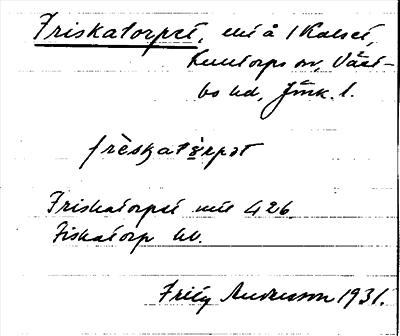 Friskatorpet, ut å 1 Kalset,
sn, Väst-
bo hd, Jönk. l.
frèskatȯrpət
Friskatorpet ut 426
Fiskatorp hl.
Fritz Andersson 1931.